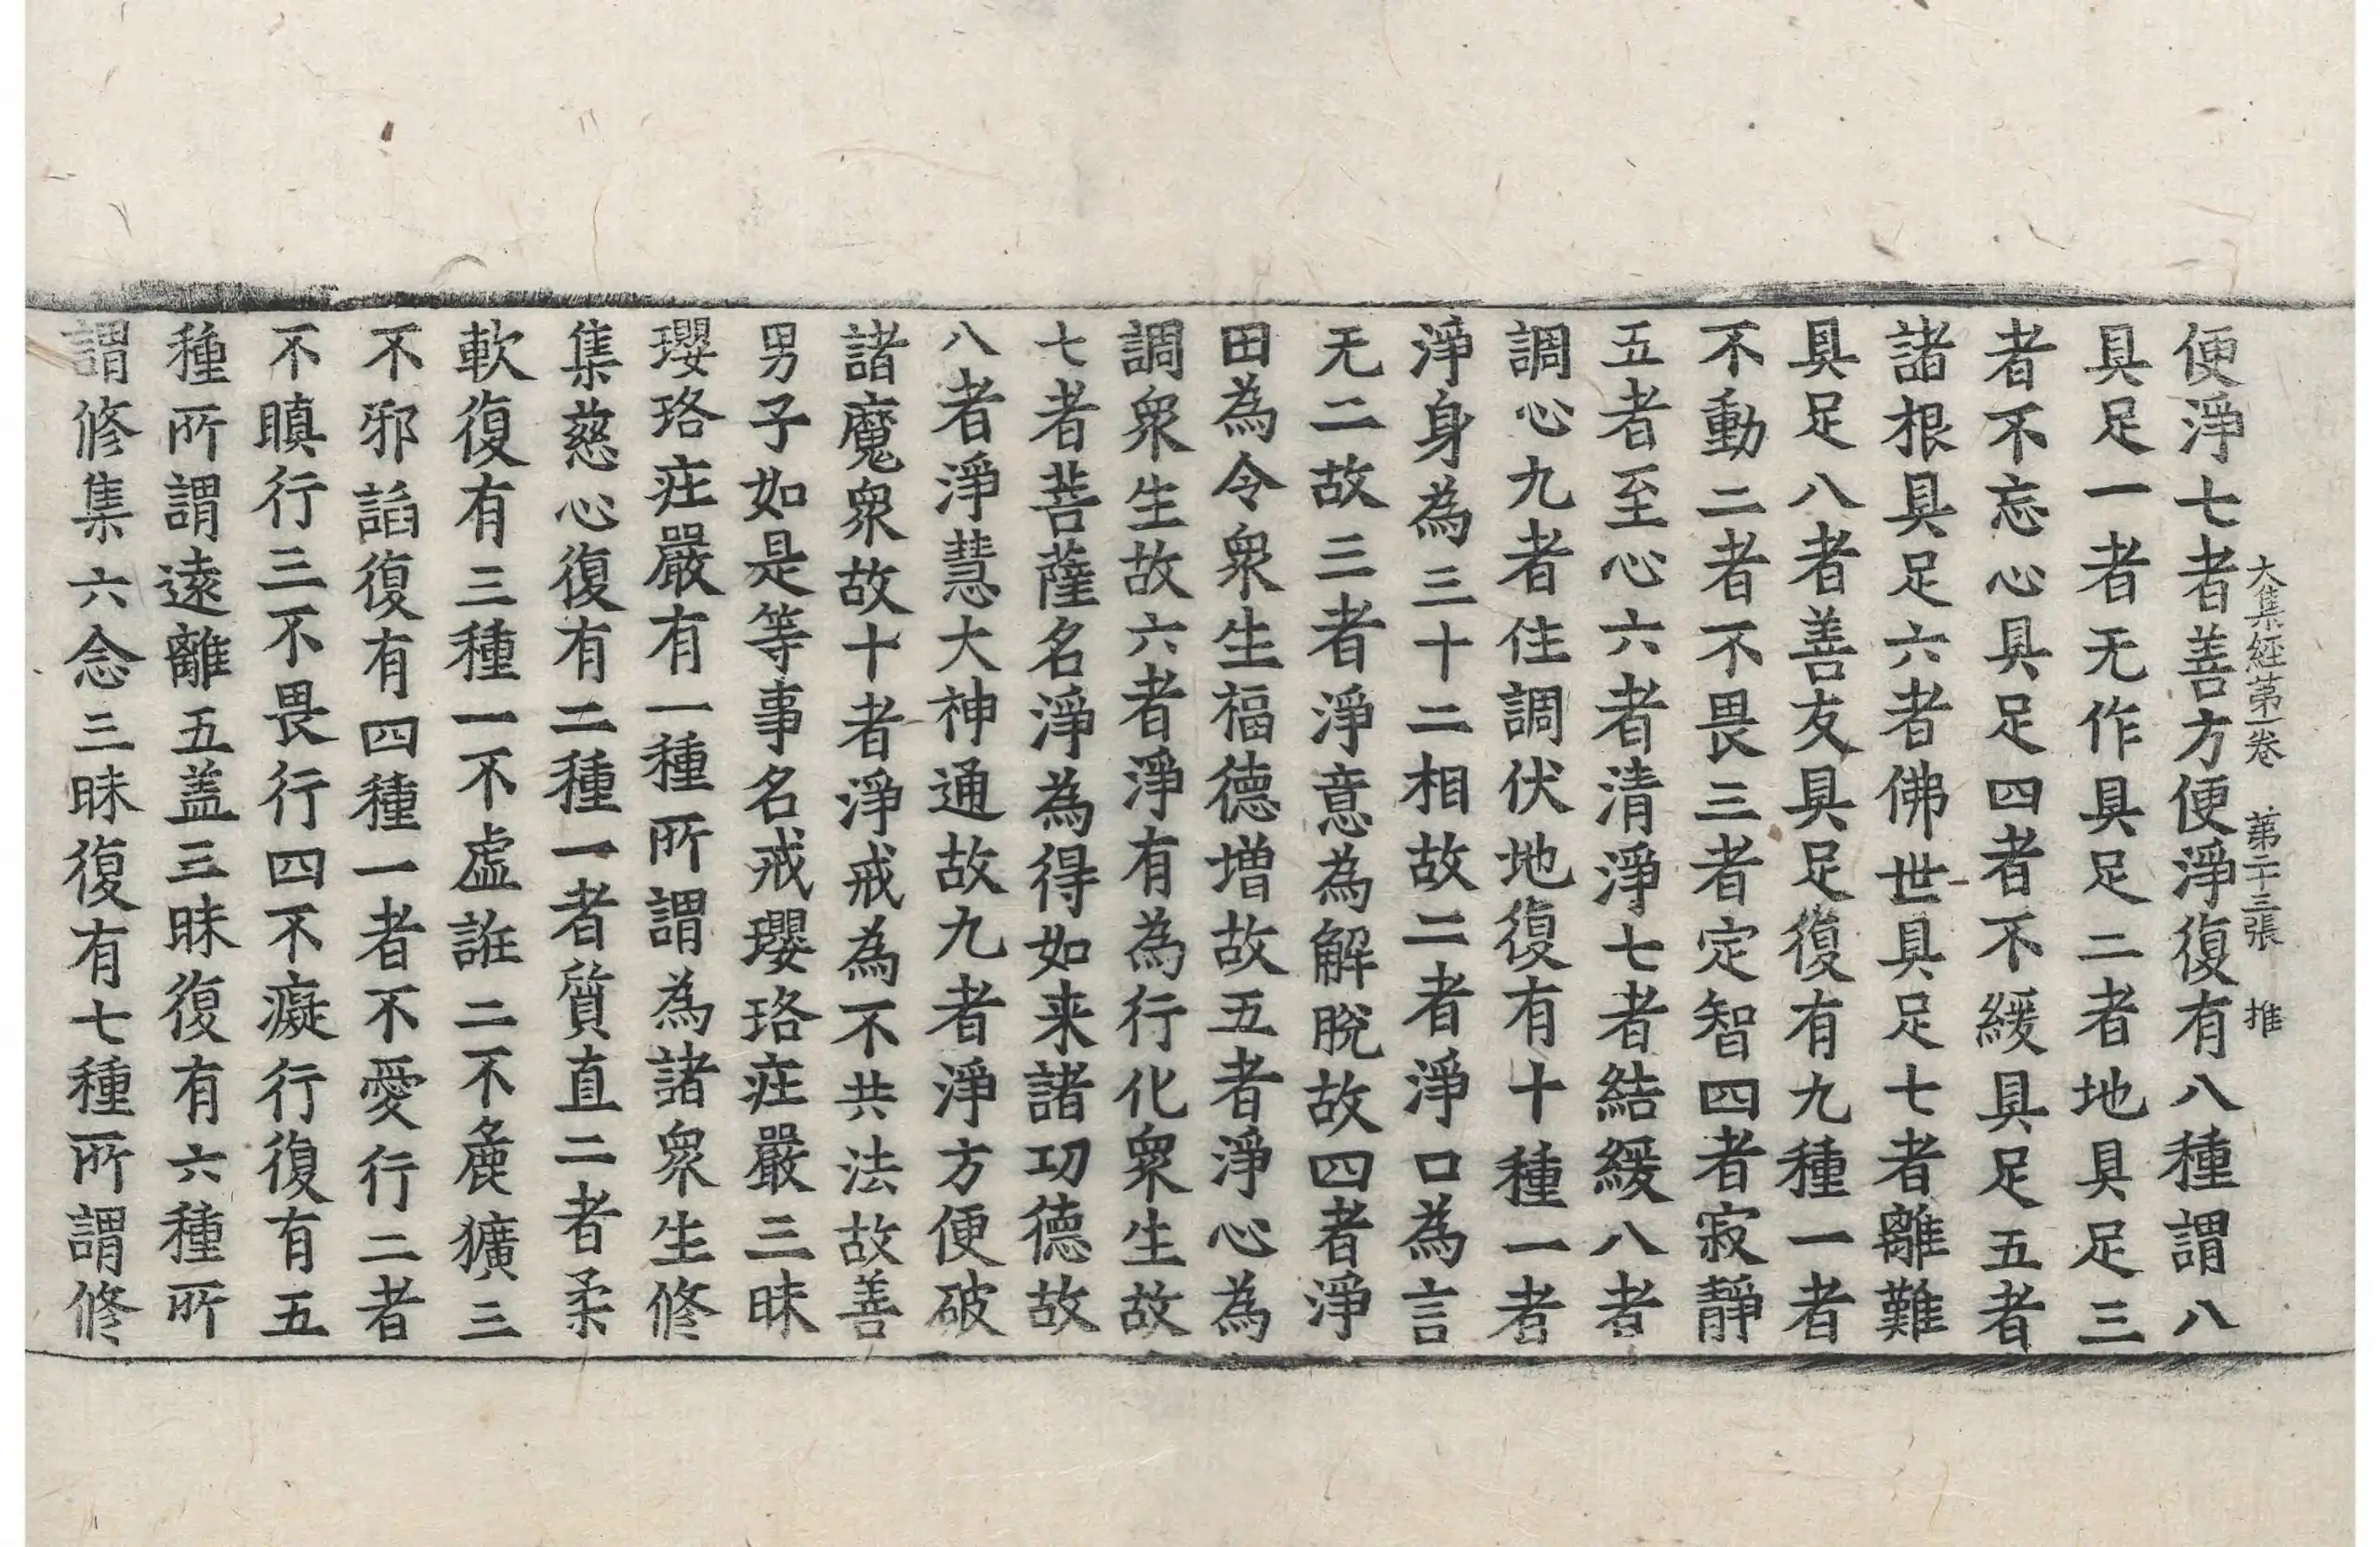 大集經第一卷 第二十三張 推
便淨七者善方便淨復有八種謂八
具足一者无作具足二者地具足三
者不忘心具足四者不緩具足五者
諸根具足六者佛世具足七者離難
具足八者善友具足復有九種一者
不動二者不畏三者定智四者寂靜
五者至心六者清淨七者結緩八者
調心九者住調伏地復有十種一者
淨身為三十二相故二者淨口為言
无二故三者淨意為解脫故四者淨
田為令衆生福德增故五者淨心為
調衆生故六者淨有為行化衆生故
七者菩薩名淨為得如来諸功德故
八者淨慧大神通故九者淨方便破
諸魔衆故十者淨戒為不共法故善
男子如是等事名戒瓔珞疘嚴三昧
瓔珞疘嚴有一種所謂為諸衆生修
集慈心復有二種一者質直二者柔
軟復有三種一不虛誑二不麁獷三
不邪謟復有四種一者不愛行二者
不瞋行三不畏行四不癡行復有五
種所謂遠離五盖三昧復有六種所
謂修集六念三昧復有七種所謂修